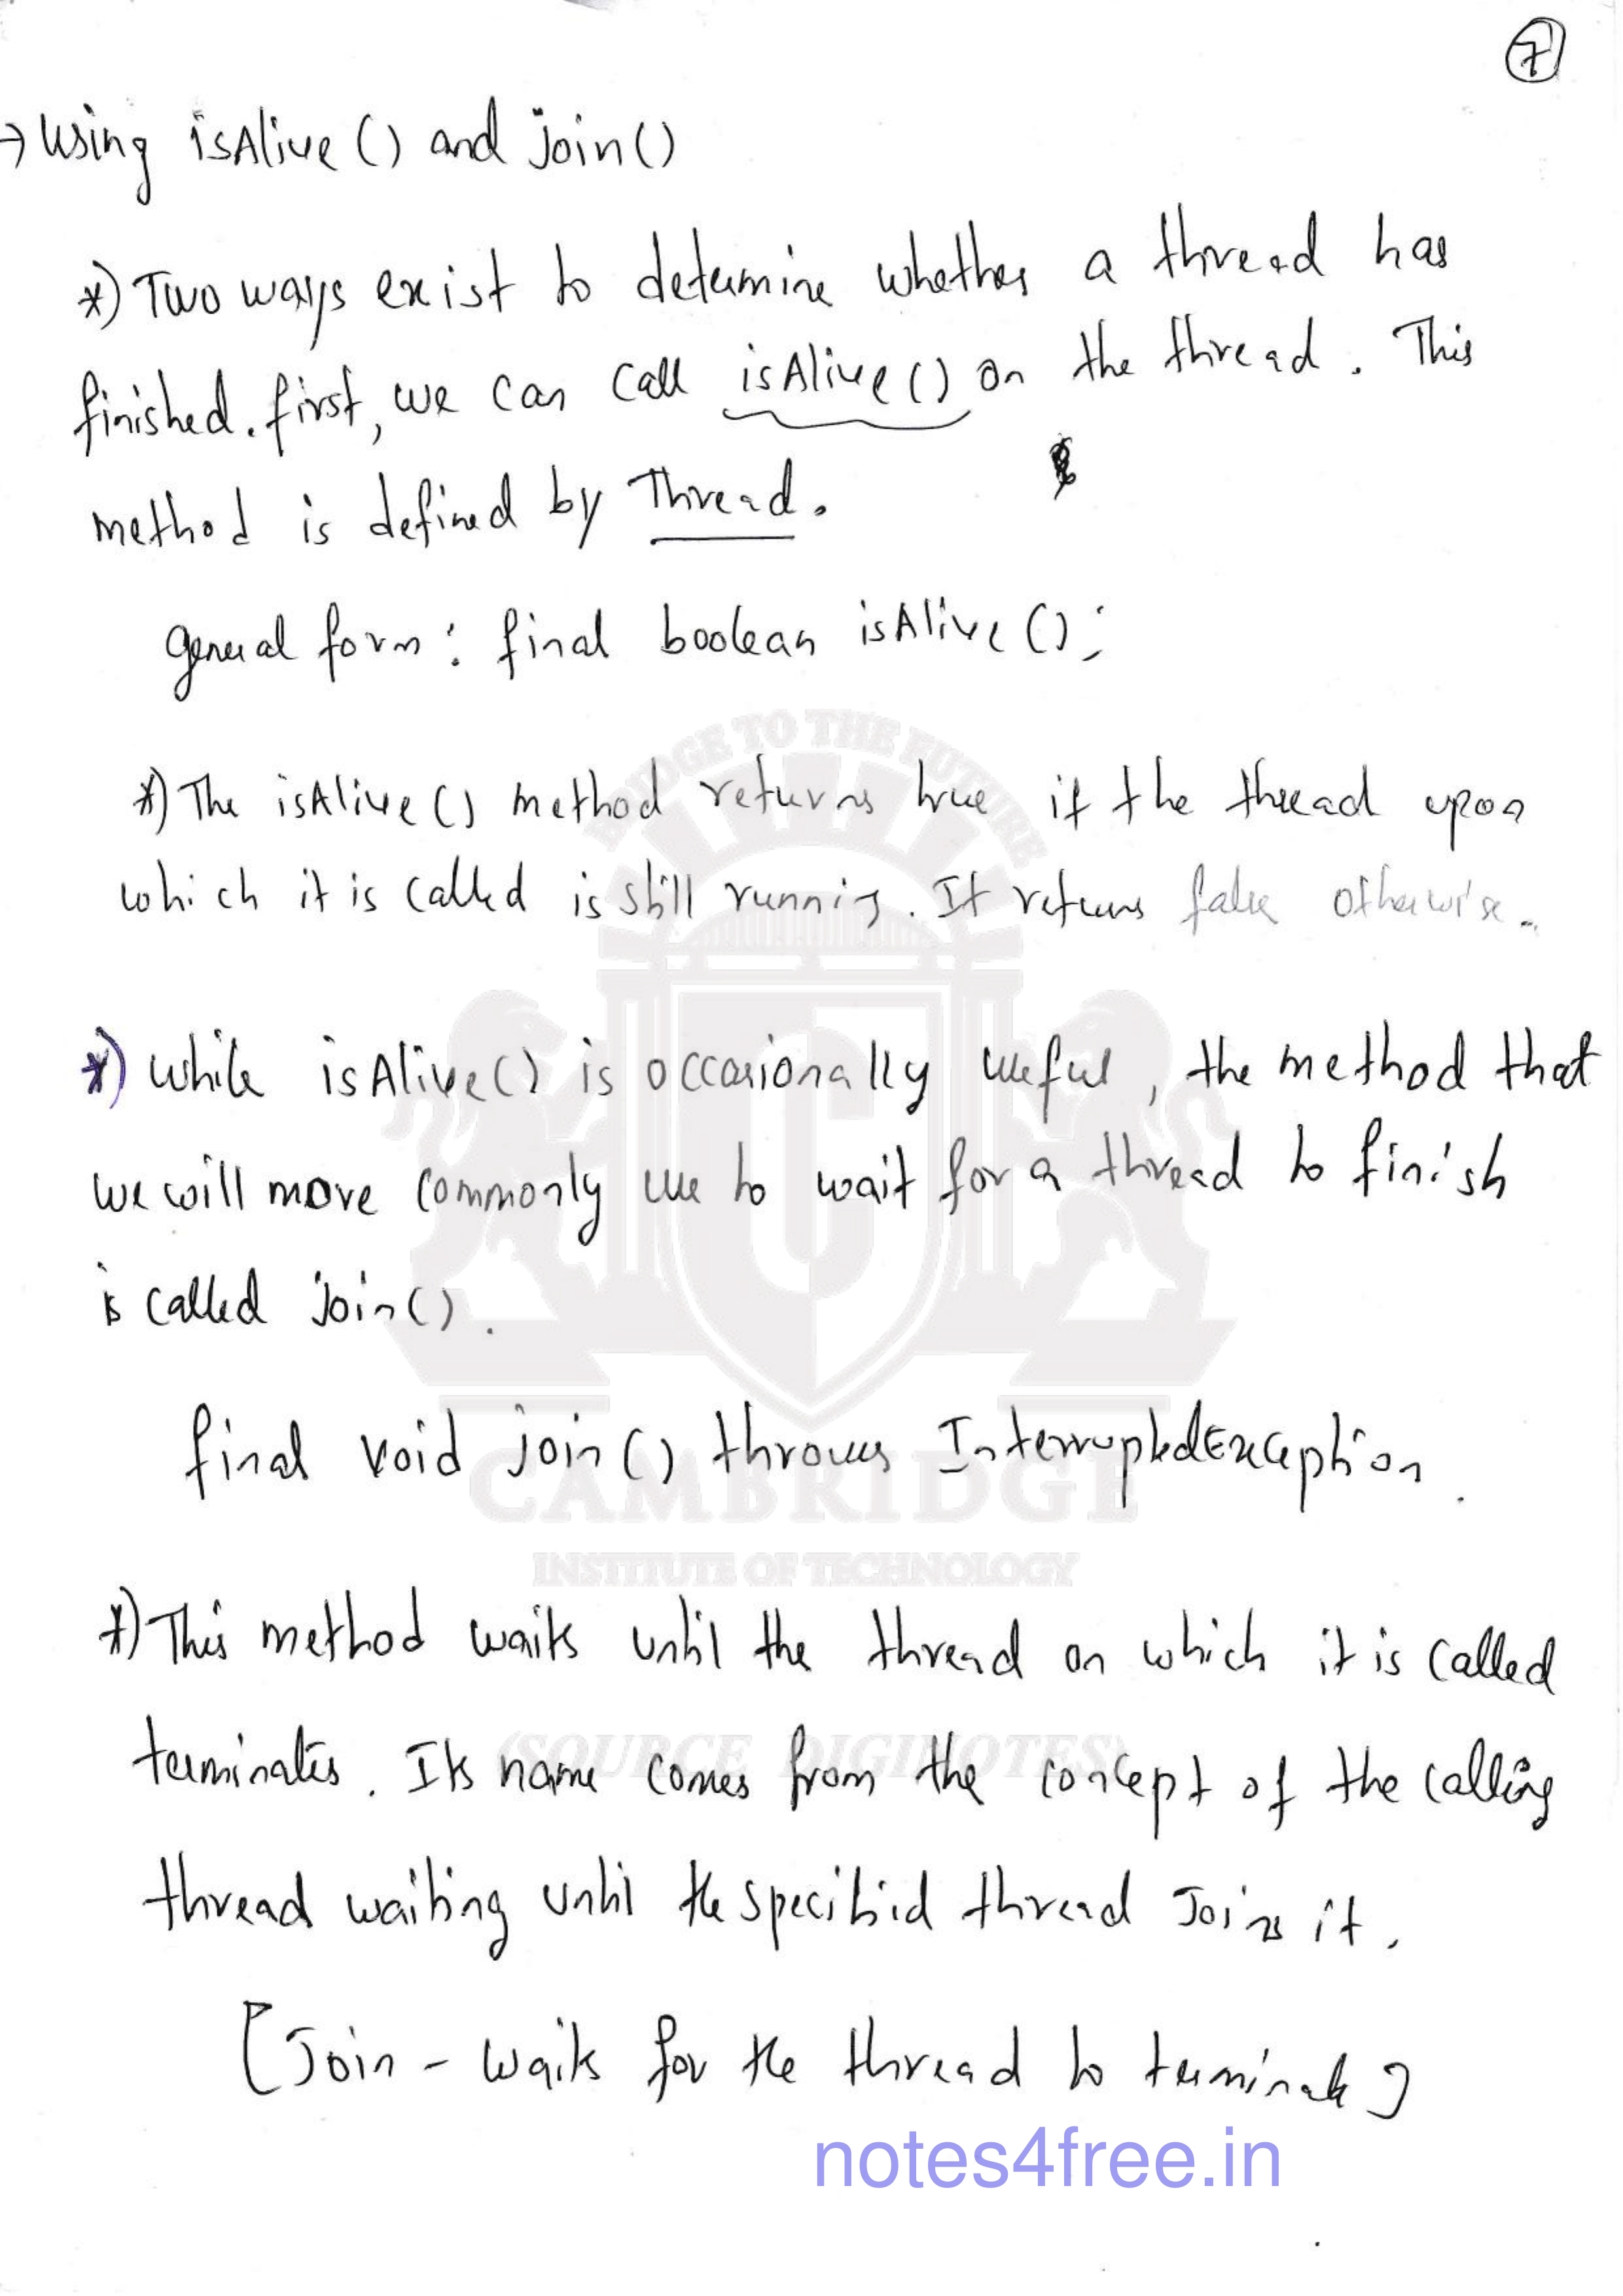 7
→ Using isAlive() and join()
*) Two ways exist to determine whether a thread has
finished. first, we can call isAlive() on the thread. This
method is defined by Thread.
general form: final boolean isAlive();
*) The isAlive() method returns true if the thread upon
which it is called is still running. It returns false otherwise.
BRIDGE TO THE FUTURE
*) While isAlive() is occasionally useful, the method that
we will more commonly use to wait for a thread to finish
is called join().
C
final void join() throws InterruptedException.
CAMBRIDGE
INSTITUTE OF TECHNOLOGY
*) This method waits until the thread on which it is called
(SOURCE DIGINOTES)
terminates. Its name comes from the concept of the calling
thread waiting until the specified thread Joins it.
[Join - waits for the thread to terminate]
notes4free.in